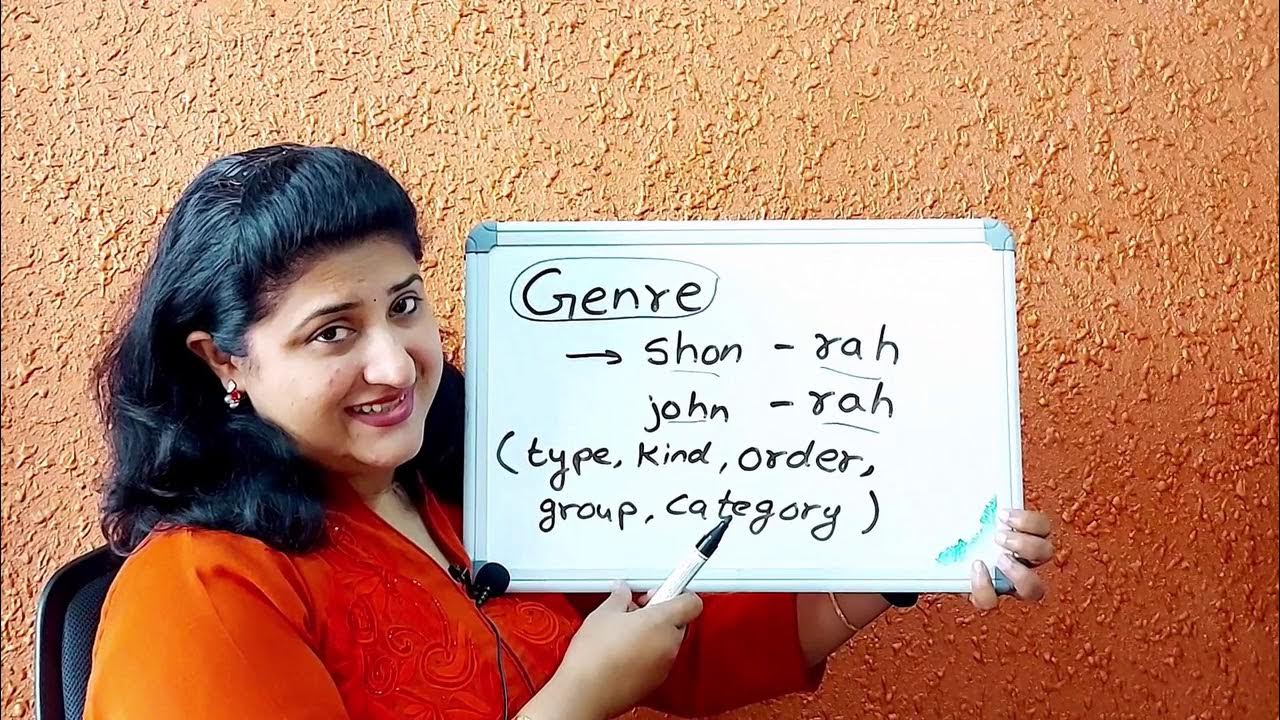 Genre
→ shon - rah
john - rah
(type, kind, order,
group, category)